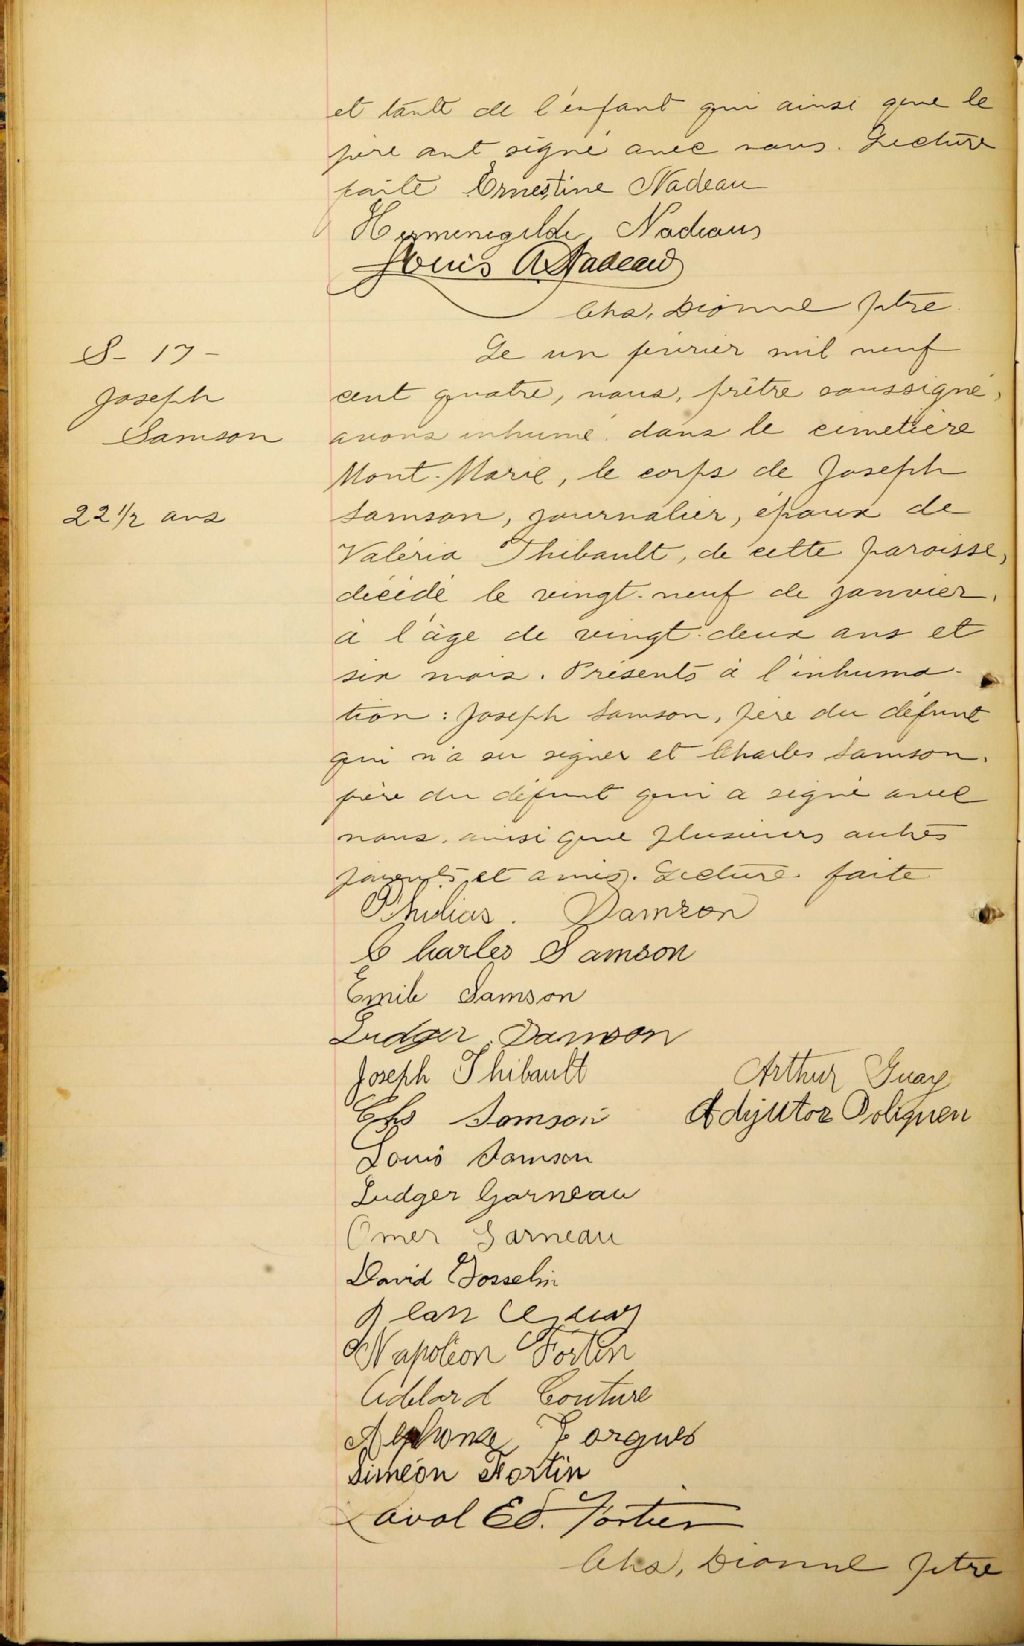 et tante de l'enfant qui ainsi que le
père ont signé avec nous. Lecture
faite Ernestine Nadeau
Hermenegilde Nadeau
Louis A. Nadeau
Chs. Dionne ptre
S - 17 -
Joseph
Samson
22 1/2 ans
Le un février mil neuf
cent quatre, nous, prêtre soussigné,
avons inhumé dans le cimetière
Mont-Marie, le corps de Joseph
Samson, journalier, époux de
Valéria Thibault, de cette paroisse,
décédé le vingt-neuf de janvier,
à l'âge de vingt-deux ans et
six mois. Présents à l'inhuma-
tion : Joseph Samson, père du défunt
qui n'a su signer et Charles Samson,
frère du défunt qui a signé avec
nous, ainsi que plusieurs autres
parents et amis. Lecture faite
Philias Samson
Charles Samson
Emile Samson
Ludger Samson
Joseph Thibault
Arthur Guay
Chs Samson
Adjutor Poliquen
Louis Samson
Ludger Garneau
Omer Garneau
David Gosselin
Jean
Napoléon Fortin
Adélard Couture
Alphonse Forgues
Siméon Fortin
Laval Ed. Fortier
Chs. Dionne ptre